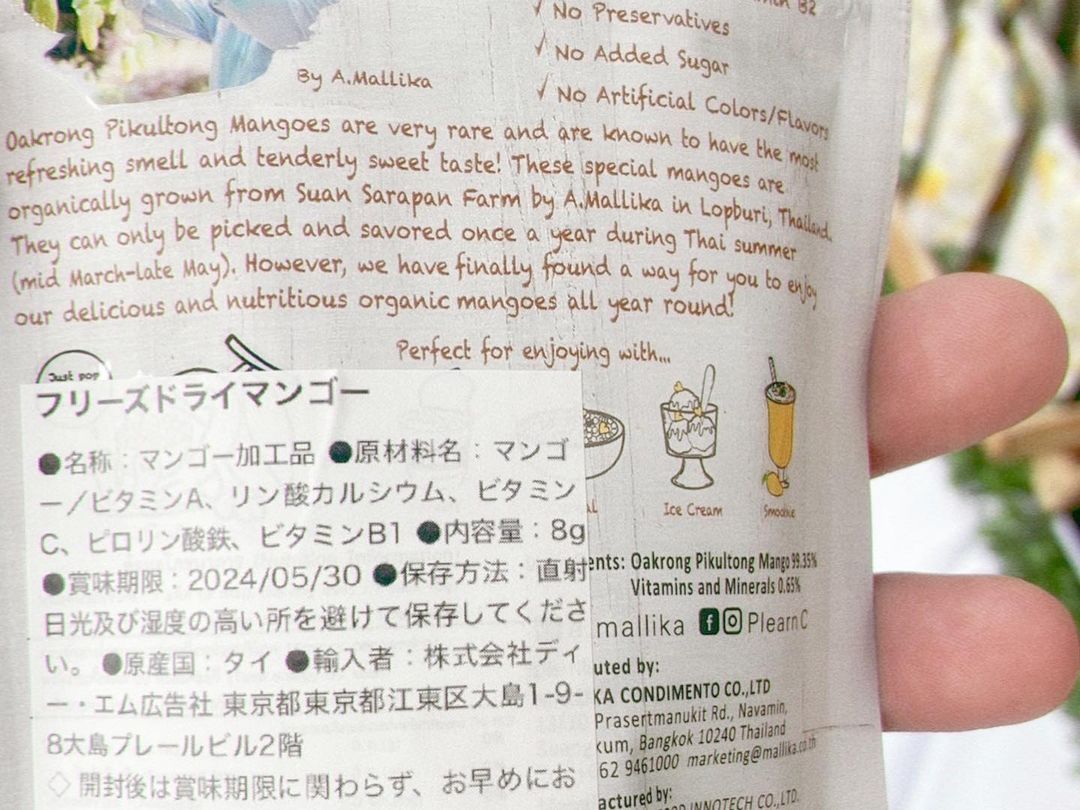 ✓ No Preservatives
✓ No Added Sugar
By A.Mallika
✓ No Artificial Colors/Flavors
Oakrong Pikultong Mangoes are very rare and are known to have the most
refreshing smell and tenderly sweet taste! These special mangoes are
organically grown from Suan Sarapan Farm by A.Mallika in Lopburi, Thailand.
They can only be picked and savored once a year during Thai summer
(mid March-late May). However, we have finally found a way for you to enjoy
our delicious and nutritious organic mangoes all year round!
Perfect for enjoying with...
Just pop
フリーズドライマンゴー
●名称：マンゴー加工品 ●原材料名：マンゴ
ー/ビタミンA、リン酸カルシウム、ビタミン
C、ピロリン酸鉄、ビタミンB1 ●内容量：8g
●賞味期限：2024/05/30 ●保存方法：直射
日光及び湿度の高い所を避けて保存してくださ
い。 ●原産国：タイ ●輸入者：株式会社ディ
ー・エム広告社 東京都東京都江東区大島1-9-
8大島プレールビル2階
◇ 開封後は賞味期限に関わらず、お早めにお
Ice Cream
Smoothie
ents: Oakrong Pikultong Mango 99.35%
Vitamins and Minerals 0.65%
mallika PlearnC
uted by:
KA CONDIMENTO CO.,LTD
Prasertmanukit Rd., Navamin,
kum, Bangkok 10240 Thailand
62 9461000 marketing@mallika.co.th
actured by:
INNOTECH CO.,LTD.